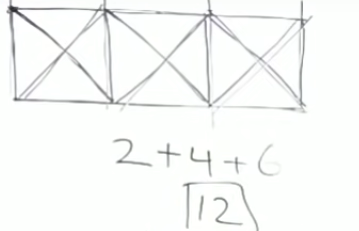 2+4+6
12